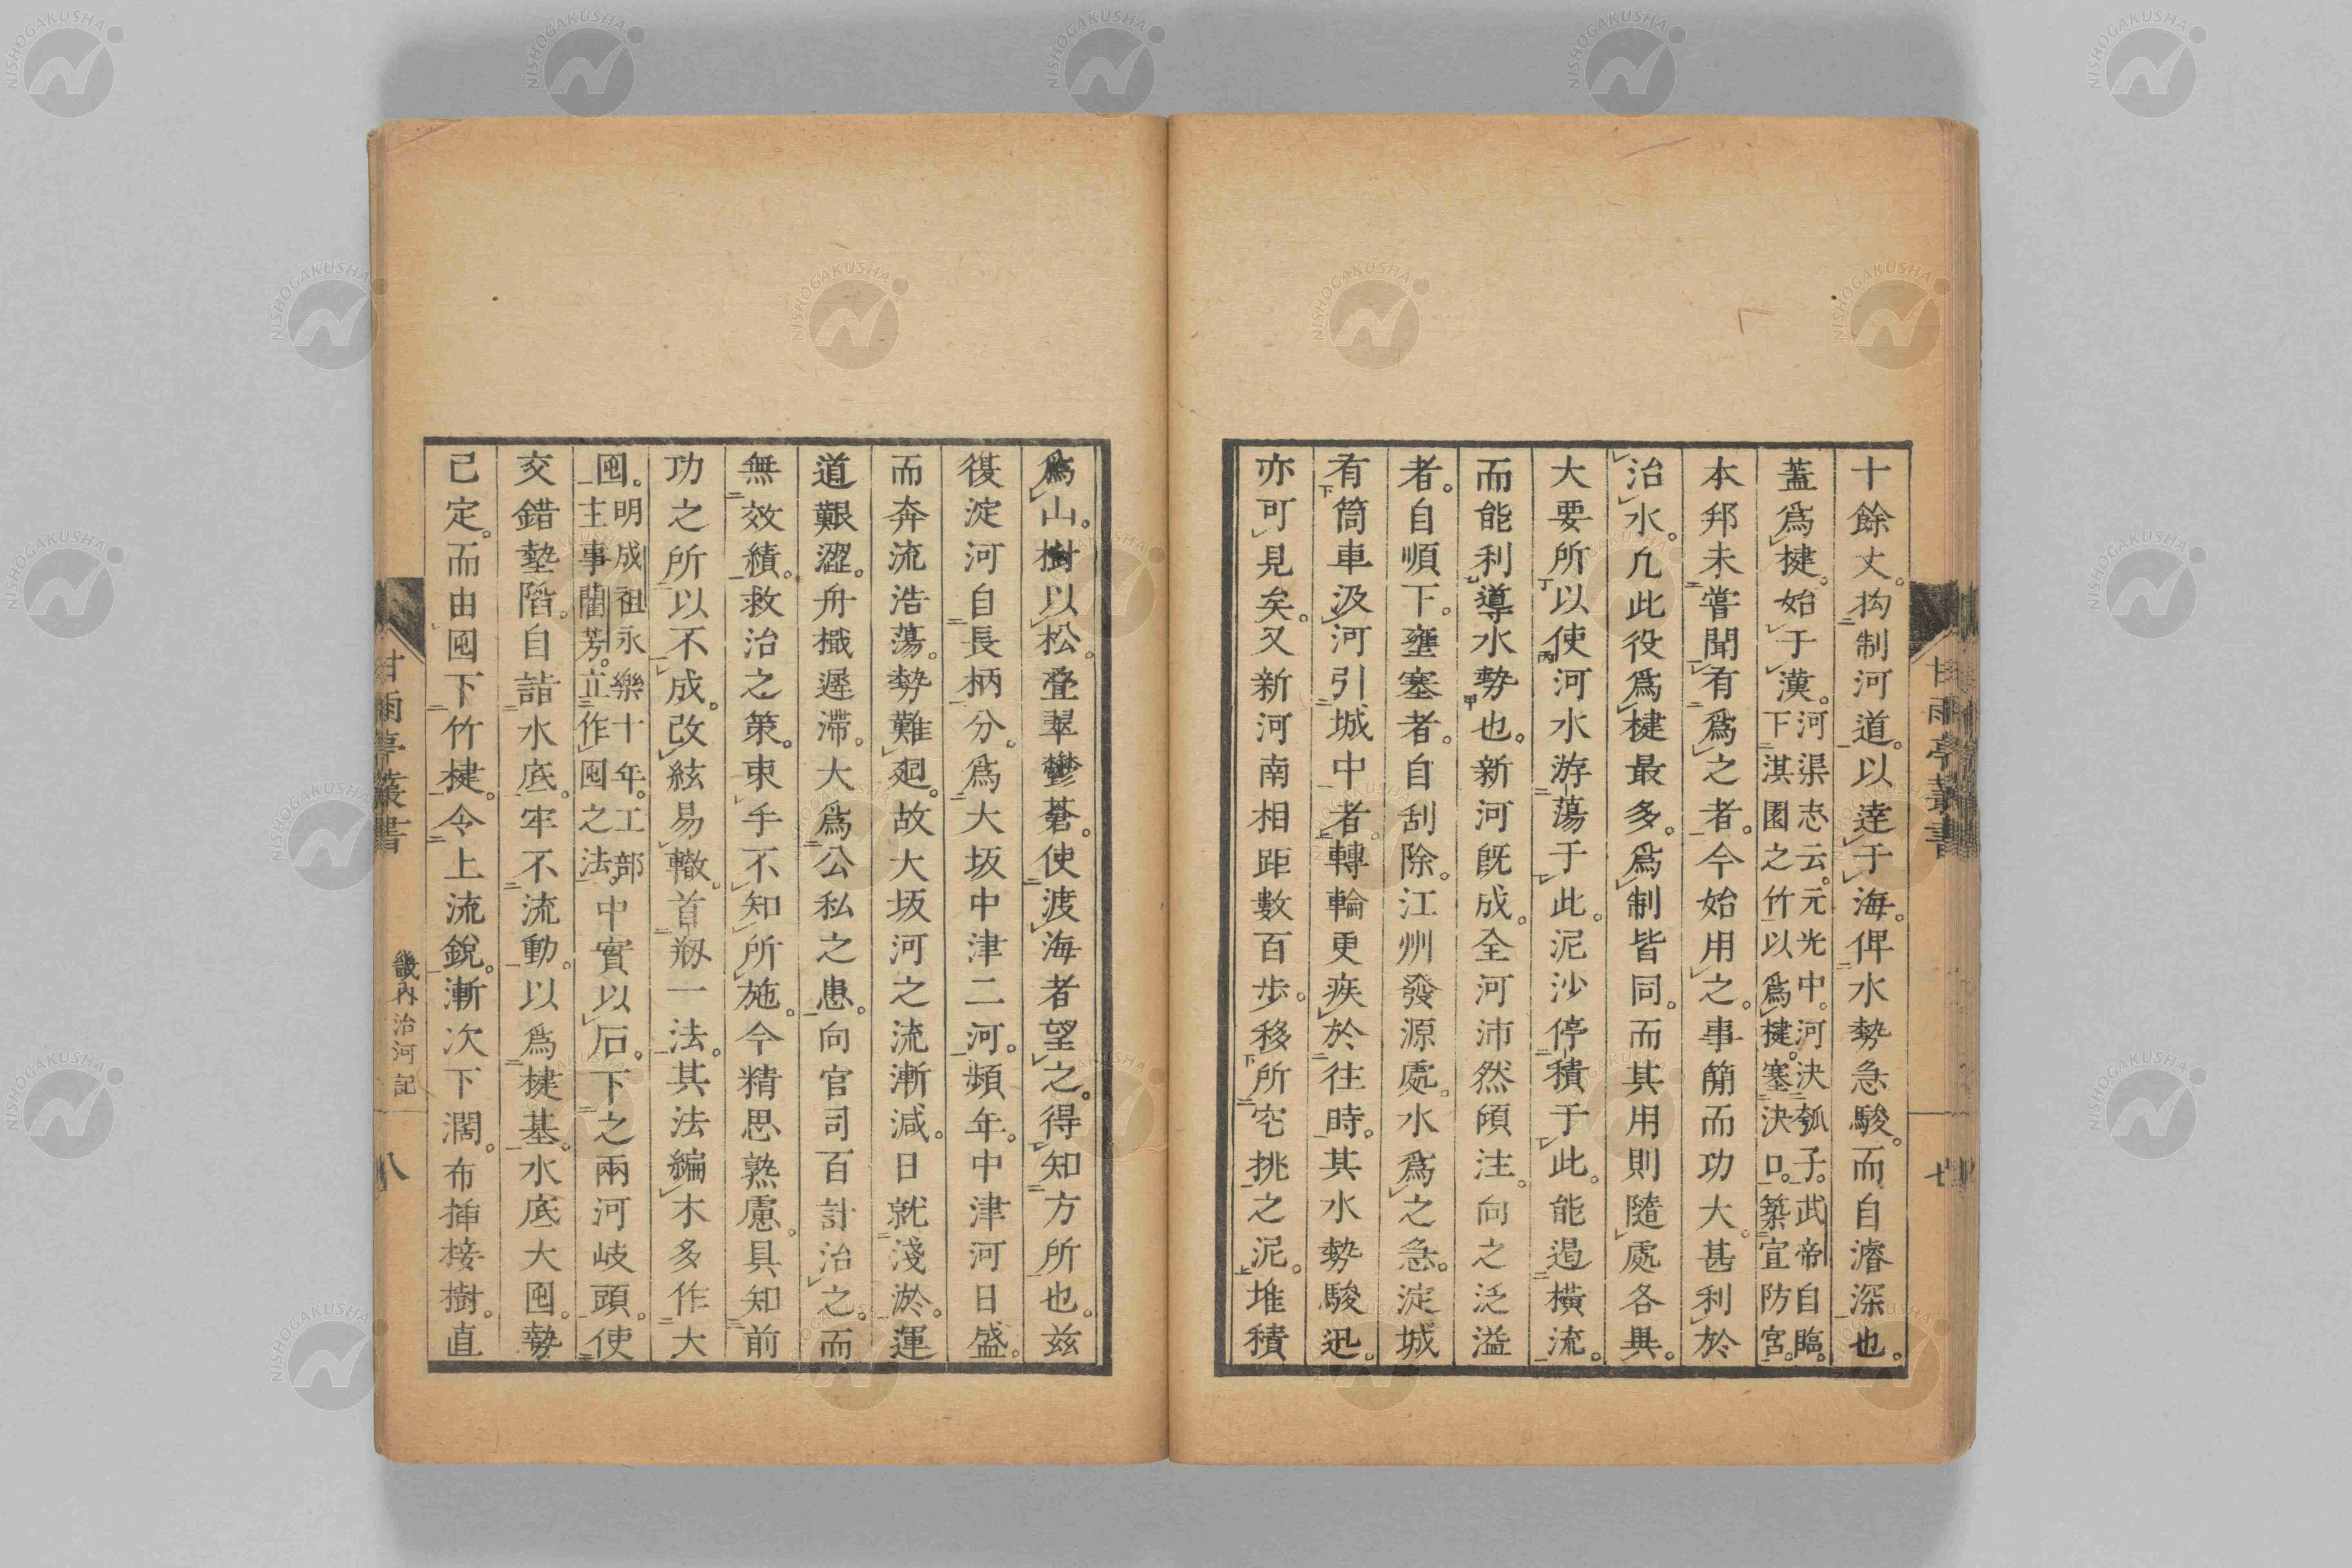 十餘丈。拘制河道。以達于海。俾水勢急駿。而自濬深也。
蓋爲楗。始于漢。
河渠志云。元光中。河決瓠子。武帝自臨。
下淇園之竹以爲楗。塞決口。築宣防宮。
本邦未嘗聞有爲之者。今始用之。事簡而功大。甚利於
治水。凢此役爲楗最多。爲制皆同。而其用則隨處各異。
大要所以使河水游蕩于此。泥沙停積于此。能遏橫流。
而能利導水勢也。新河既成。全河沛然傾注。向之泛溢
者。自順下。壅塞者。自刮除。江州發源處。水爲之急。淀城
有筒車汲河引城中者。轉輪更疾於往時。其水勢駿迅。
亦可見矣。又新河南相距數百步。移所空挑之泥。堆積
甘雨亭叢書
七
爲山。樹以松。叠翠鬱蒼。使渡海者望之。得知方所也。茲
後淀河自長柄分。爲大坂中津二河。頻年。中津河日盛。
而奔流浩蕩。勢難廻。故大坂河之流漸减。日就淺淤。運
道艱澀。舟檝遲滯。大爲公私之患。向官司百計治之。而
無效績。救治之策。束手不知所施。今精思熟慮。具知前
功之所以不成。改絃易轍。首刱一法。其法編木多作大
囤。
明成祖永樂十年。工部
主事藺芳。立作囤之法。
中實以石。下之兩河岐頭。使
交錯墊陷。自詣水底。牢不流動。以爲楗基。水底大囤。勢
已定。而由囤下竹楗。令上流銳。漸次下濶。布揷椄樹。直
甘雨亭叢書
畿内治河記
八
NISHOGAKUSHA